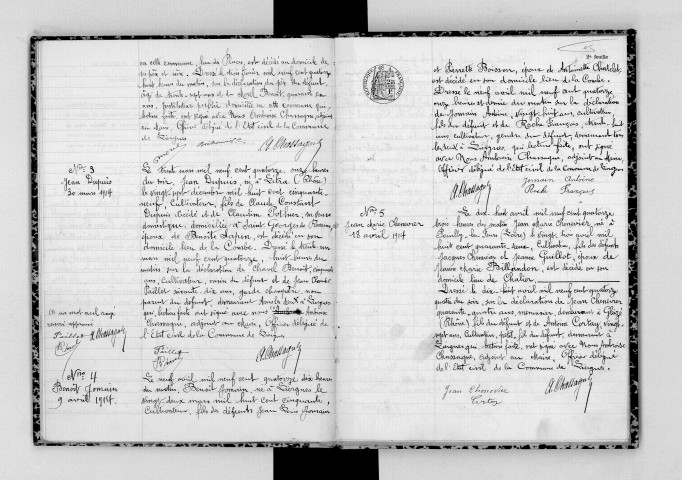 en cette commune, lieu de
sa père et mère. Dressé le
heures du matin, sur la déclaration du père du défunt
âgé de trente-sept ans et de
ans,
défunt, ont signé avec Nous Antoine Chassagne, adjoint
au Maire, Officier délégué de l'Etat civil de la Commune
de Liergues
A. Chassagne
Nos 3
Jean Dupuis
30 mars 1914
Le trente mars mil neuf cent quatorze, onze heures
du soir, Jean Dupuis, né à Létra (Rhône)
le vingt sept décembre mil huit cent cinquante
neuf, Cultivateur, fils de Claude Constant
Dupuis décédé et de Claudine Pothier, sa veuve
domestique, domiciliée à Saint Georges de Reneins,
époux de Benoîte Lapin, est décédé en son
domicile lieu de la Combe. Dressé le trente un
mars mil neuf cent quatorze, huit heures du
matin sur la déclaration de Chavel Benoît, cinquante
ans, cultivateur, voisin du défunt et de Jean Claude
Paillet soixante dix ans, garde champêtre, non
parent du défunt, domiciliés tous deux à Liergues
qui, lecture faite ont signé avec nous Antoine
Chassagne, adjoint au Maire, Officier délégué de
l'Etat civil de la Commune de Liergues.
Un mot nul rayé
approuvé
Paillet A. Chassagne
Paillet
A. Chassagne
Nos 4
Benoît Jomain
9 avril 1914.
Le neuf avril mil neuf cent quatorze dix heures
du matin, Benoît Jomain né à Liergues le
vingt-deux mars mil huit cent cinquante,
Cultivateur, fils des défunts Jean Louis Jomain
2e feuille
et Pierrette Boisson, époux de Antoinette Chatelet,
est décédé en son domicile lieu de la Combe.
Dressé le neuf avril mil neuf cent quatorze
onze heures et demie du matin sur la déclaration
de Jomain Antoine, vingt-huit ans, cultivateur,
fils du défunt et de Roche François, trente-huit
ans, cultivateur, gendre du défunt, demeurant tous
les deux à Liergues, qui lecture faite, ont signé
avec Nous Antoine Chassagne, adjoint au Maire,
Officier délégué de l'Etat civil de la Commune de Liergues
A. Chassagne
Jomain Antoine
Roche François
Nos 5
Jean Marie Chenevier
18 avril 1914
Le dix huit avril mil neuf cent quatorze
trois heures du matin Jean Marie Chenevier, né à
Pouilly les (Loire) le vingt
huit cent quarante deux, Cultivateur, fils des défunts
Jacques Chenevier et Jeanne Guillot, époux de
Jeanne Marie Billandon, est décédé en son
domicile lieu de
Dressé le dix-huit avril mil neuf cent quatorze
quatre du soir, sur la déclaration de Jean Chenevier
quarante quatre ans, menuisier, demeurant à Gleizé
(Rhône) fils du défunt et de Antoine Cortey, vingt-
sept ans, Cultivateur, petit fils du défunt, demeurant à
Liergues qui, lecture faite, ont signé avec Nous Antoine
Chassagne, adjoint au Maire, Officier délégué
de l'Etat civil de la Commune de Liergues.
Jean Chenevier
Cortey
A. Chassagne